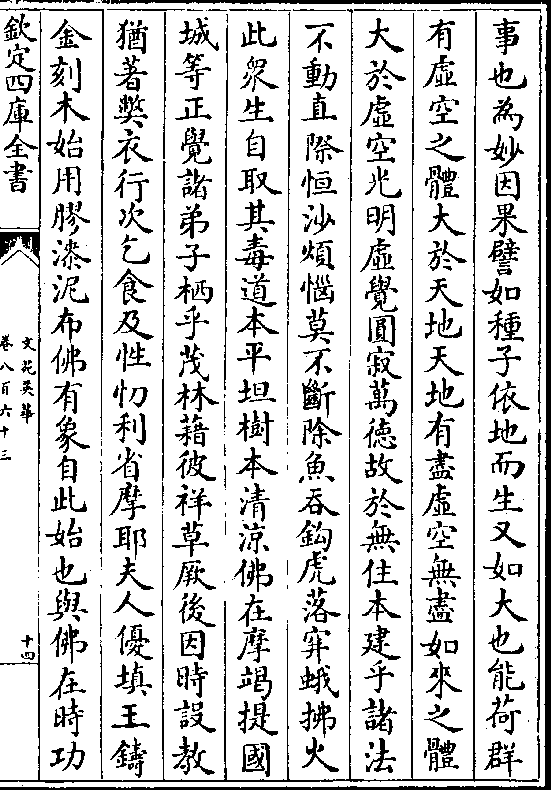 事也為妙因果譬如種子依地而生又如大也能荷群
有虛空之體大於天地天地有盡虛空無盡如來之體
大於虛空光明虛覺圓寂萬德故於無住本建乎諸法
不動直際恒沙煩惱莫不斷除魚吞鈎虎落穽蛾拂火
此衆生自取其毒道本平坦樹本清涼佛在摩竭提國
城等正覺諸弟子栖乎茂林藉彼祥草厥後因時設教
猶著弊衣行次乞食及性忉利省摩耶夫人優填王鑄
金刻木始用膠漆泥布佛有象自此始也與佛在時功
欽定四庫全書
文苑英華
卷八百六十三
十四